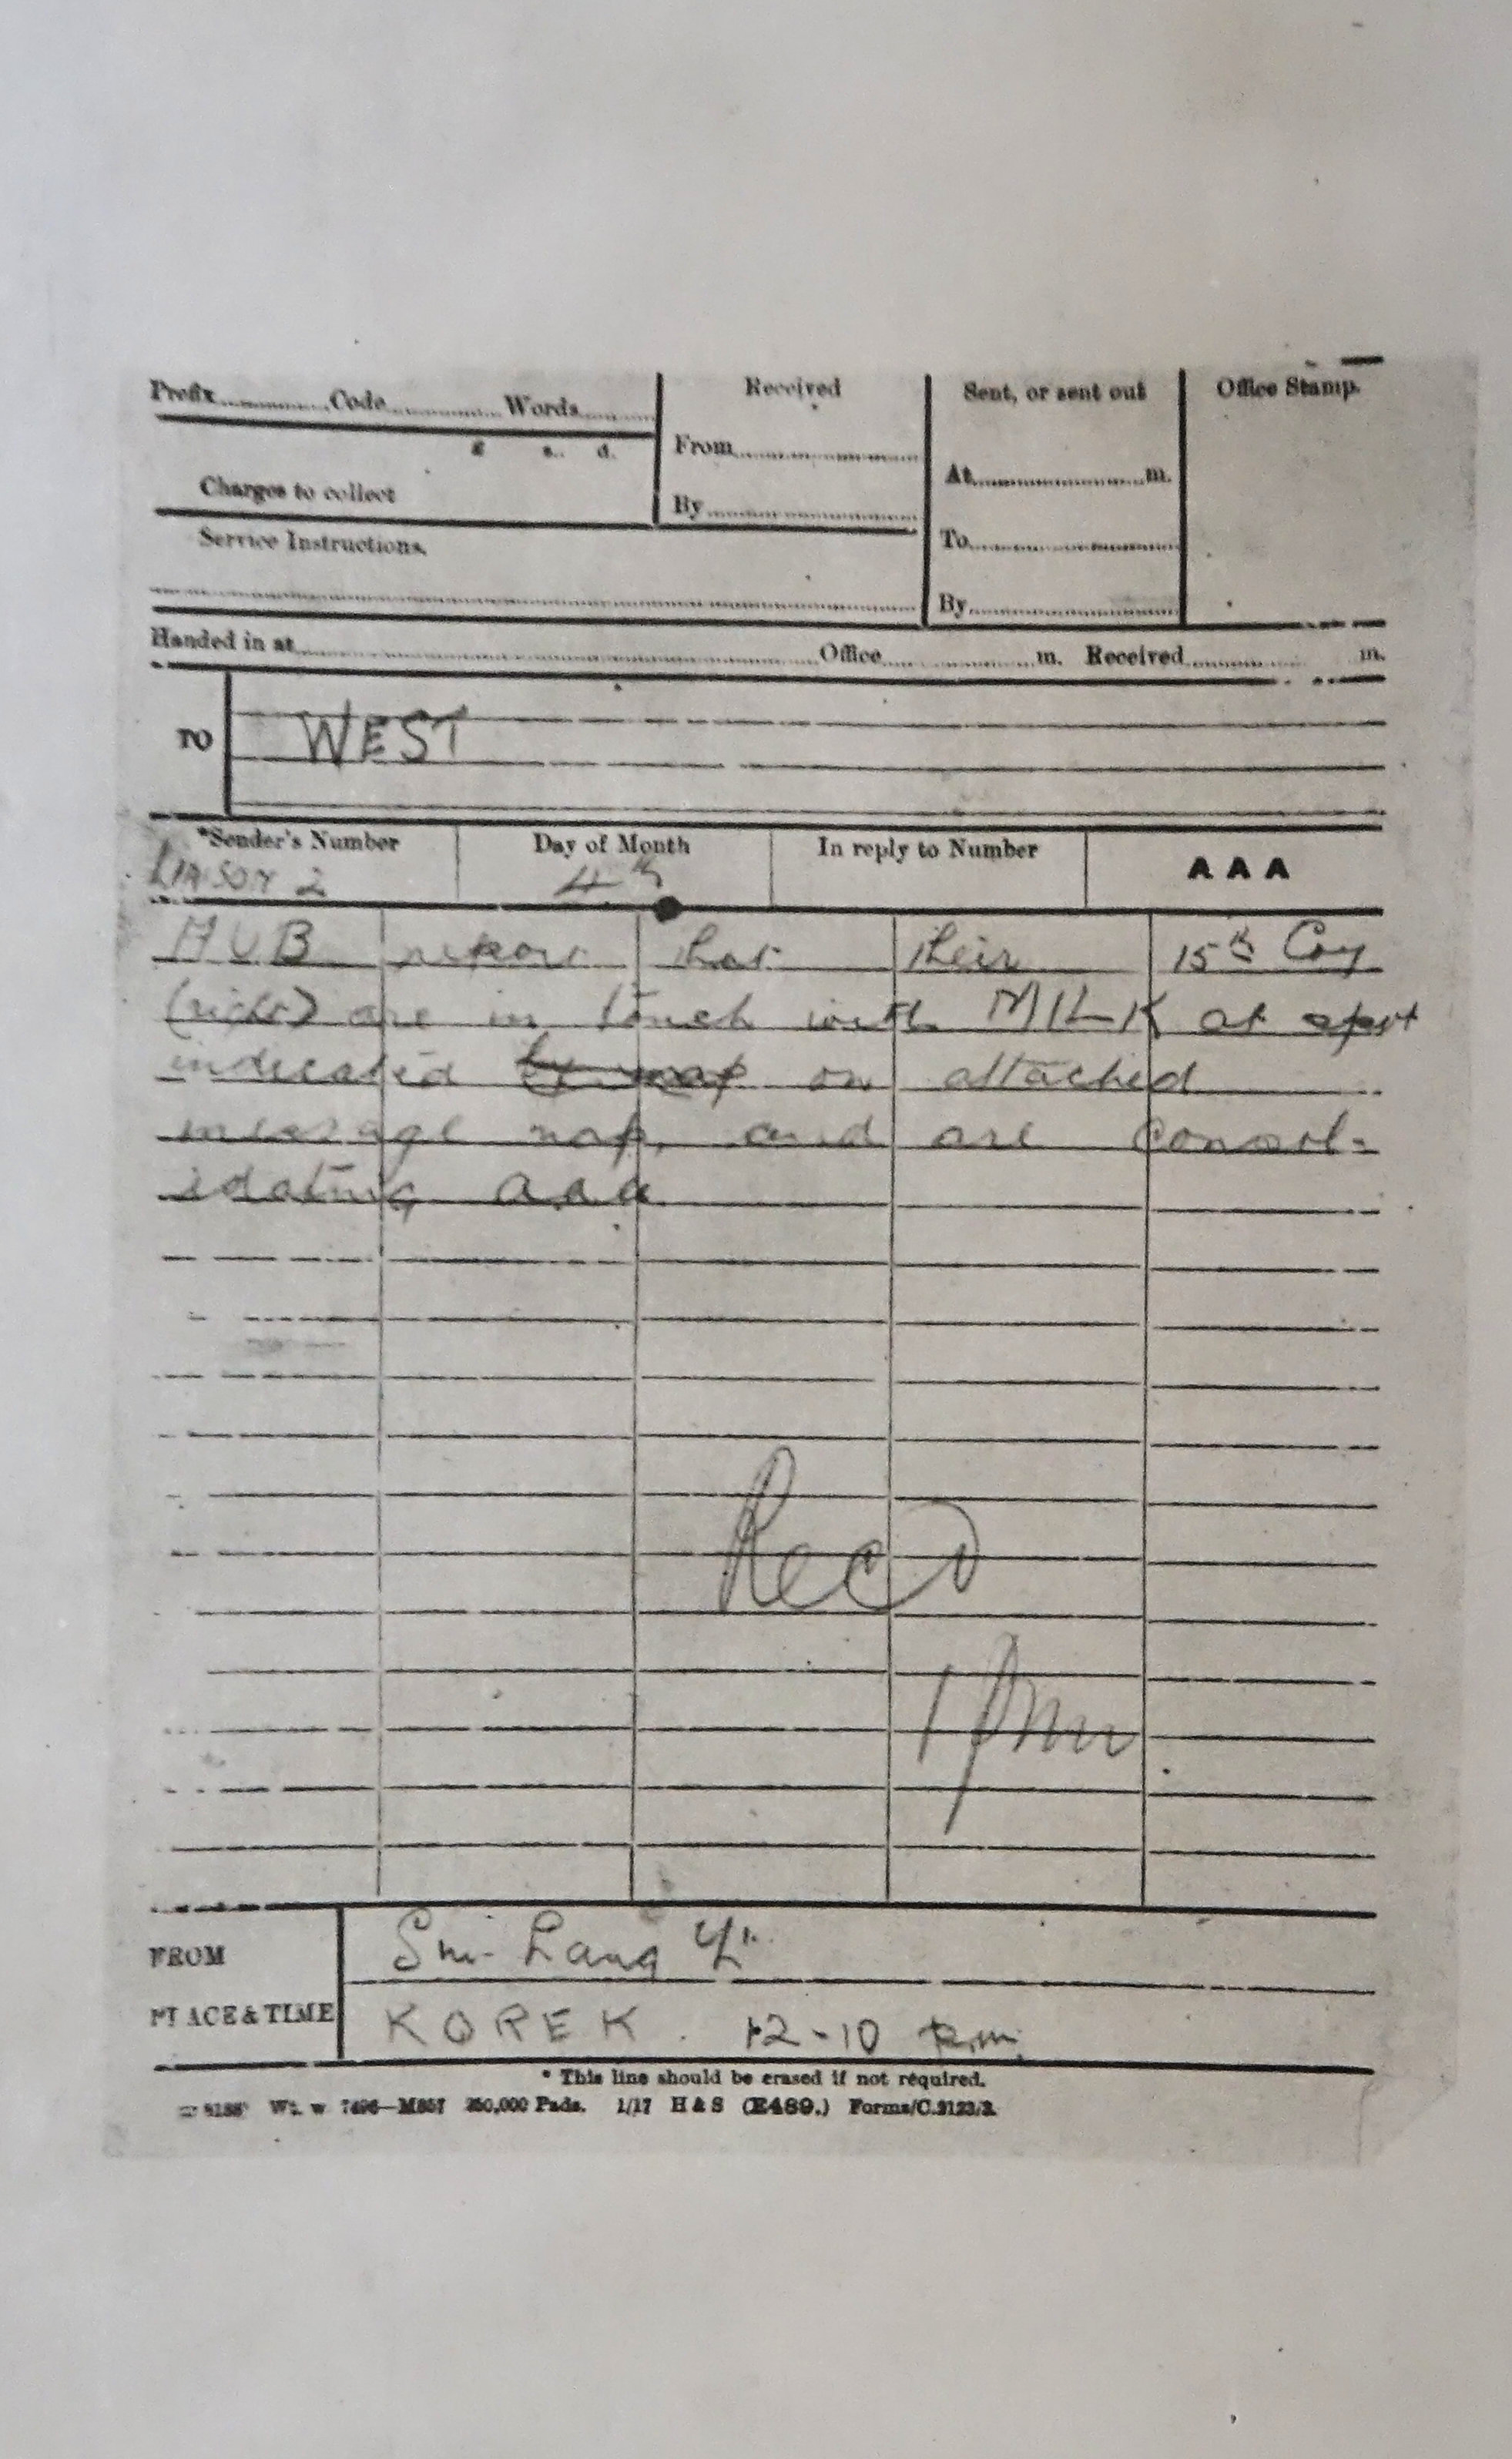 Prefix............Code............Words..........
£ s. d.
Charges to collect
Service Instructions.
Received
From
By
Sent, or sent out
At m.
To
By
Office Stamp.
Handed in at Office m. Received m.
TO WEST
*Sender's Number Day of Month In reply to Number AAA
Liaison 2 4th
HUB report that their 15th Coy
(right) are in touch with MILK at spot
indicated by map on attached
message map, and are consol-
idating aaa
Recd
1 pm
FROM Lang Lt
PLACE & TIME KOREK. 12-10 p.m.
* This line should be erased if not required.
Wt. w 7496—M857 250,000 Pads. 1/17 H & S (E489.) Forms/C.2123/3.